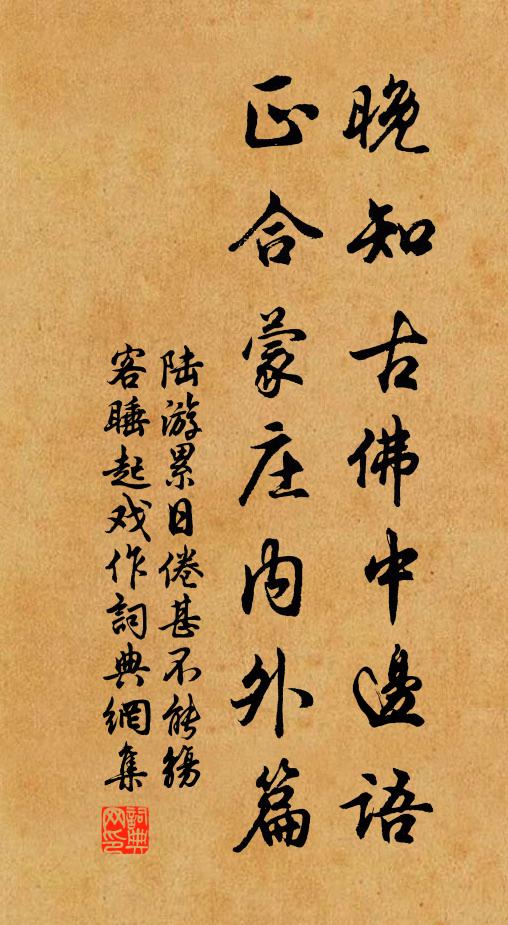 晚知古佛中邊語
正合蒙庄内外篇
陆游累日倦甚不能觞
客睡起戏作詞典網集
詞典网印